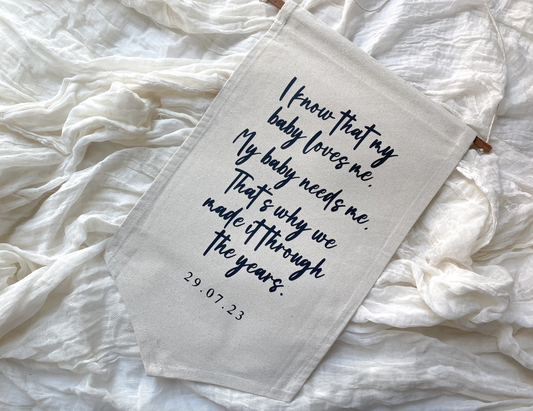 I know that my
baby loves me.
My baby needs me.
That's why we
made it through
the years.
29.07.23